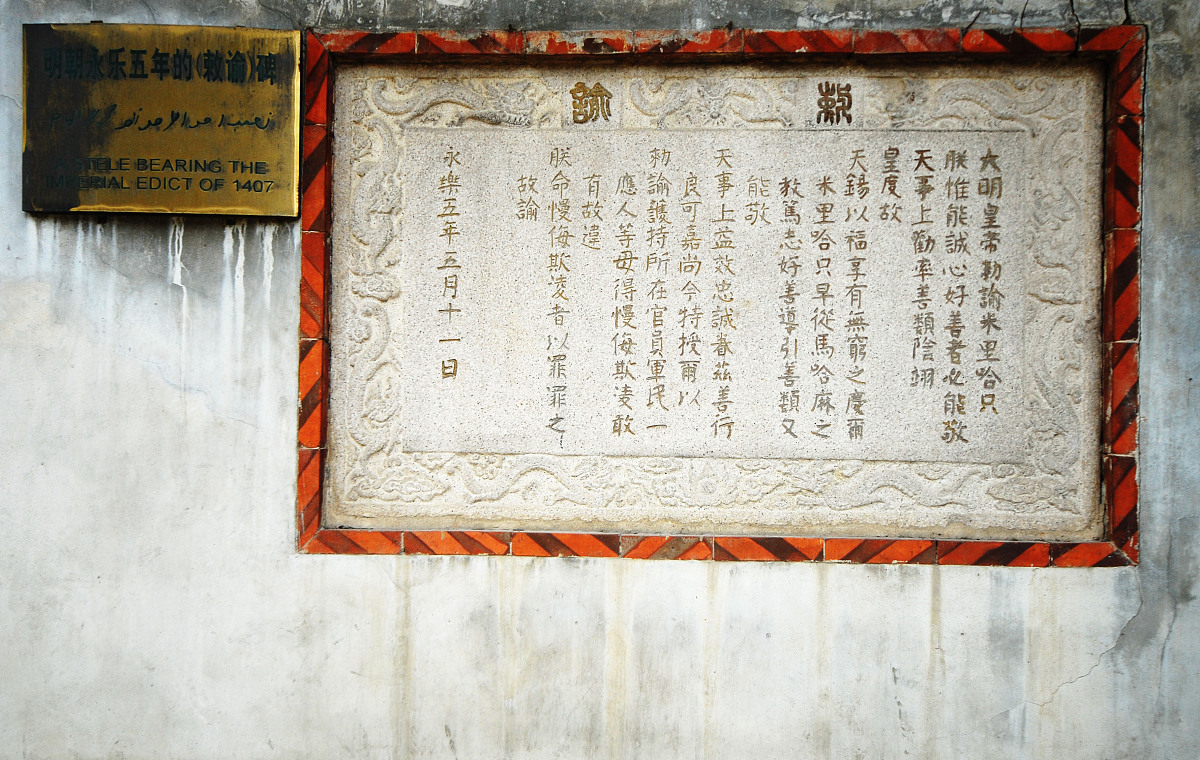 明朝永乐五年的《敕谕》碑
STELE BEARING THE
IMPERIAL EDICT OF 1407
敕諭
大明皇帝勅諭米里哈只
朕惟能誠心好善者必能敬
天事上勸率善類陰翊
皇度故
天錫以福享有無窮之慶爾
米里哈只早從馬哈麻之
教篤志好善導引善類又
能敬
天事上益效忠誠眷茲善行
良可嘉尚今特授爾以
勅諭護持所在官員軍民一
應人等毋得慢侮欺凌敢
有故違
朕命慢侮欺凌者以罪罪之
故諭
永樂五年五月十一日